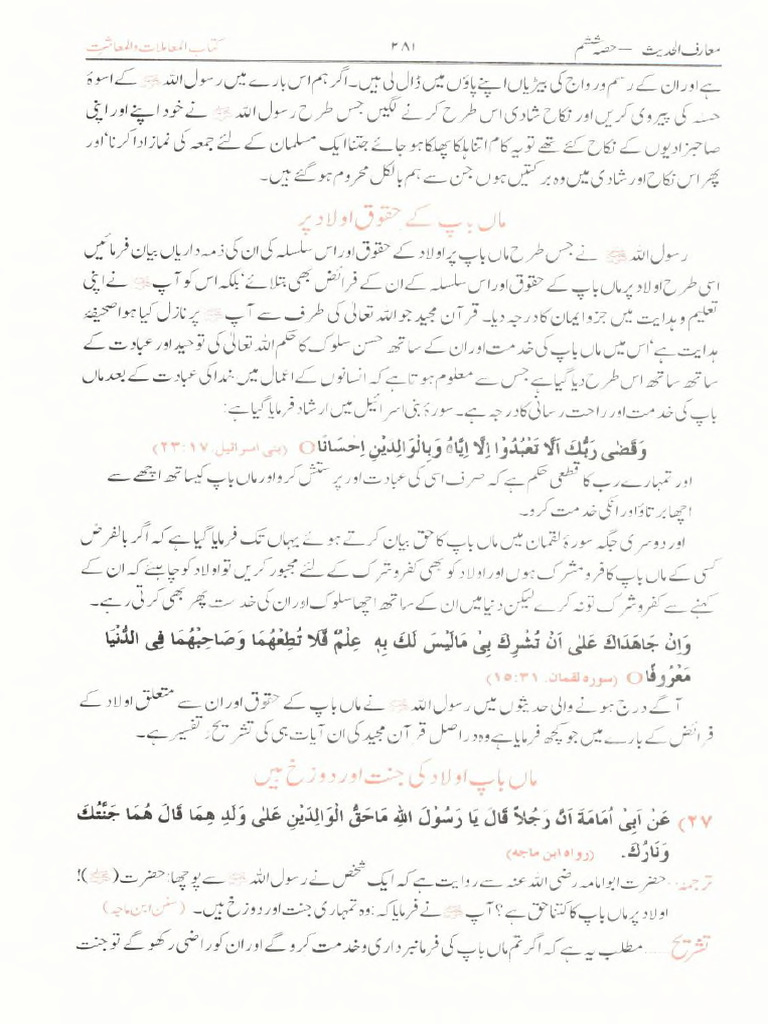 معارف الحدیث – حصہ ششم ۲۸۱ کتاب المعاملات والمعاشرت
ہے اور ان کے رسم و رواج کی بیڑیاں اپنے پاؤں میں ڈال لی ہیں۔ اگر ہم اس بارے میں رسول اللہ ﷺ کے اسوۂ
حسنہ کی پیروی کریں اور نکاح شادی اس طرح کرنے لگیں جس طرح رسول اللہ ﷺ نے خود اپنے اور اپنی
صاحبزادیوں کے نکاح کئے تھے تو یہ کام اتنا ہلکا پھلکا ہو جائے جتنا ایک مسلمان کے لئے جمعہ کی نماز ادا کرنا‘ اور
پھر اس نکاح اور شادی میں وہ برکتیں ہوں جن سے ہم بالکل محروم ہو گئے ہیں۔
ماں باپ کے حقوق اولاد پر
رسول اللہ ﷺ نے جس طرح ماں باپ پر اولاد کے حقوق اور اس سلسلہ کی ان کی ذمہ داریاں بیان فرمائیں
اسی طرح اولاد پر ماں باپ کے حقوق اور اس سلسلہ کے ان کے فرائض بھی بتلائے‘ بلکہ اس کو آپ ﷺ نے اپنی
تعلیم و ہدایت میں جزو ایمان کا درجہ دیا۔ قرآن مجید جو اللہ تعالیٰ کی طرف سے آپ ﷺ پر نازل کیا ہوا صحیفۂ
ہدایت ہے‘ اس میں ماں باپ کی خدمت اور ان کے ساتھ حسن سلوک کا حکم اللہ تعالیٰ کی توحید اور عبادت کے
ساتھ ساتھ اس طرح دیا گیا ہے جس سے معلوم ہوتا ہے کہ انسانوں کے اعمال میں خدا کی عبادت کے بعد ماں
باپ کی خدمت اور راحت رسانی کا درجہ ہے۔ سورۂ بنی اسرائیل میں ارشاد فرمایا گیا ہے:
وَقَضٰی رَبُّكَ اَلَّا تَعْبُدُوْٓا اِلَّآ اِيَّاهُ وَبِالْوَالِدَيْنِ اِحْسَانًا○ (بنی اسرائیل، ۲۳:۱۷)
اور تمہارے رب کا قطعی حکم ہے کہ صرف اسی کی عبادت اور پرستش کرو اور ماں باپ کیساتھ اچھے سے
اچھا برتاؤ اور انکی خدمت کرو۔
اور دوسری جگہ سورۂ لقمان میں ماں باپ کا حق بیان کرتے ہوئے یہاں تک فرمایا گیا ہے کہ اگر بالفرض
کسی کے ماں باپ کافر و مشرک ہوں اور اولاد کو بھی کفر و شرک کے لئے مجبور کریں تو اولاد کو چاہئے کہ ان کے
کہنے سے کفر و شرک تو نہ کرے لیکن دنیا میں ان کے ساتھ اچھا سلوک اور ان کی خدمت پھر بھی کرتی رہے۔
وَاِنْ جَاهَدَاكَ عَلٰی اَنْ تُشْرِكَ بِیْ مَالَيْسَ لَكَ بِهٖ عِلْمٌ فَلَا تُطِعْهُمَا وَصَاحِبْهُمَا فِی الدُّنْيَا
مَعْرُوْفًا○ (سورہ لقمان، ۱۵:۳۱)
آگے درج ہونے والی حدیثوں میں رسول اللہ ﷺ نے ماں باپ کے حقوق اور ان سے متعلق اولاد کے
فرائض کے بارے میں جو کچھ فرمایا ہے وہ دراصل قرآن مجید کی ان آیات ہی کی تشریح و تفسیر ہے۔
ماں باپ اولاد کی جنت اور دوزخ ہیں
۲۷) عَنْ اَبِیْ اُمَامَةَ اَنَّ رَجُلاً قَالَ يَا رَسُوْلَ اللهِ مَاحَقُّ الْوَالِدَيْنِ عَلٰی وَلَدِ هِمَا قَالَ هُمَا جَنَّتُكَ
وَنَارُكَ۔ (رواہ ابن ماجه)
ترجمہ.... حضرت ابو امامہ رضی اللہ عنہ سے روایت ہے کہ ایک شخص نے رسول اللہ ﷺ سے پوچھا: حضرت (ﷺ)!
اولاد پر ماں باپ کا کتنا حق ہے؟ آپ ﷺ نے فرمایا کہ: وہ تمہاری جنت اور دوزخ ہیں۔ (سنن ابن ماجہ)
تشریح..... مطلب یہ ہے کہ اگر تم ماں باپ کی فرمانبرداری و خدمت کرو گے اور ان کو راضی رکھو گے تو جنت